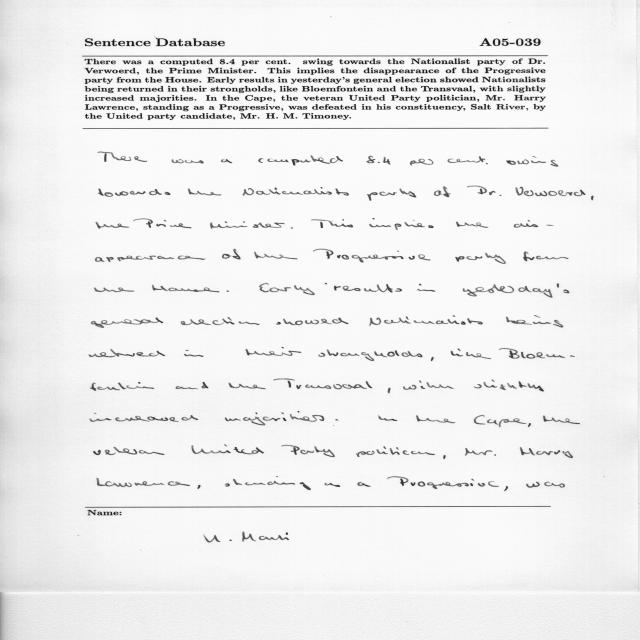 Sentence Database A05-039
There was a computed 8.4 per cent. swing towards the Nationalist party of Dr.
Verwoerd, the Prime Minister. This implies the disappearance of the Progressive
party from the House. Early results in yesterday's general election showed Nationalists
being returned in their strongholds, like Bloemfontein and the Transvaal, with slightly
increased majorities. In the Cape, the veteran United Party politician, Mr. Harry
Lawrence, standing as a Progressive, was defeated in his constituency, Salt River, by
the United party candidate, Mr. H. M. Timoney.
There was a computed 8.4 per cent. swing
towards the Nationalists party of Dr. Verwoerd,
the Prime Minister. This implies the dis-
appearance of the Progressive party from
the House. Early results in yesterday's
general election showed Nationalists being
returned in their strongholds, like Bloem-
fontein and the Transvaal, with slightly
increased majorities. In the Cape, the
veteran United Party politican, Mr. Harry
Lawrence, standing as a Progressive, was
Name:
U. Marti